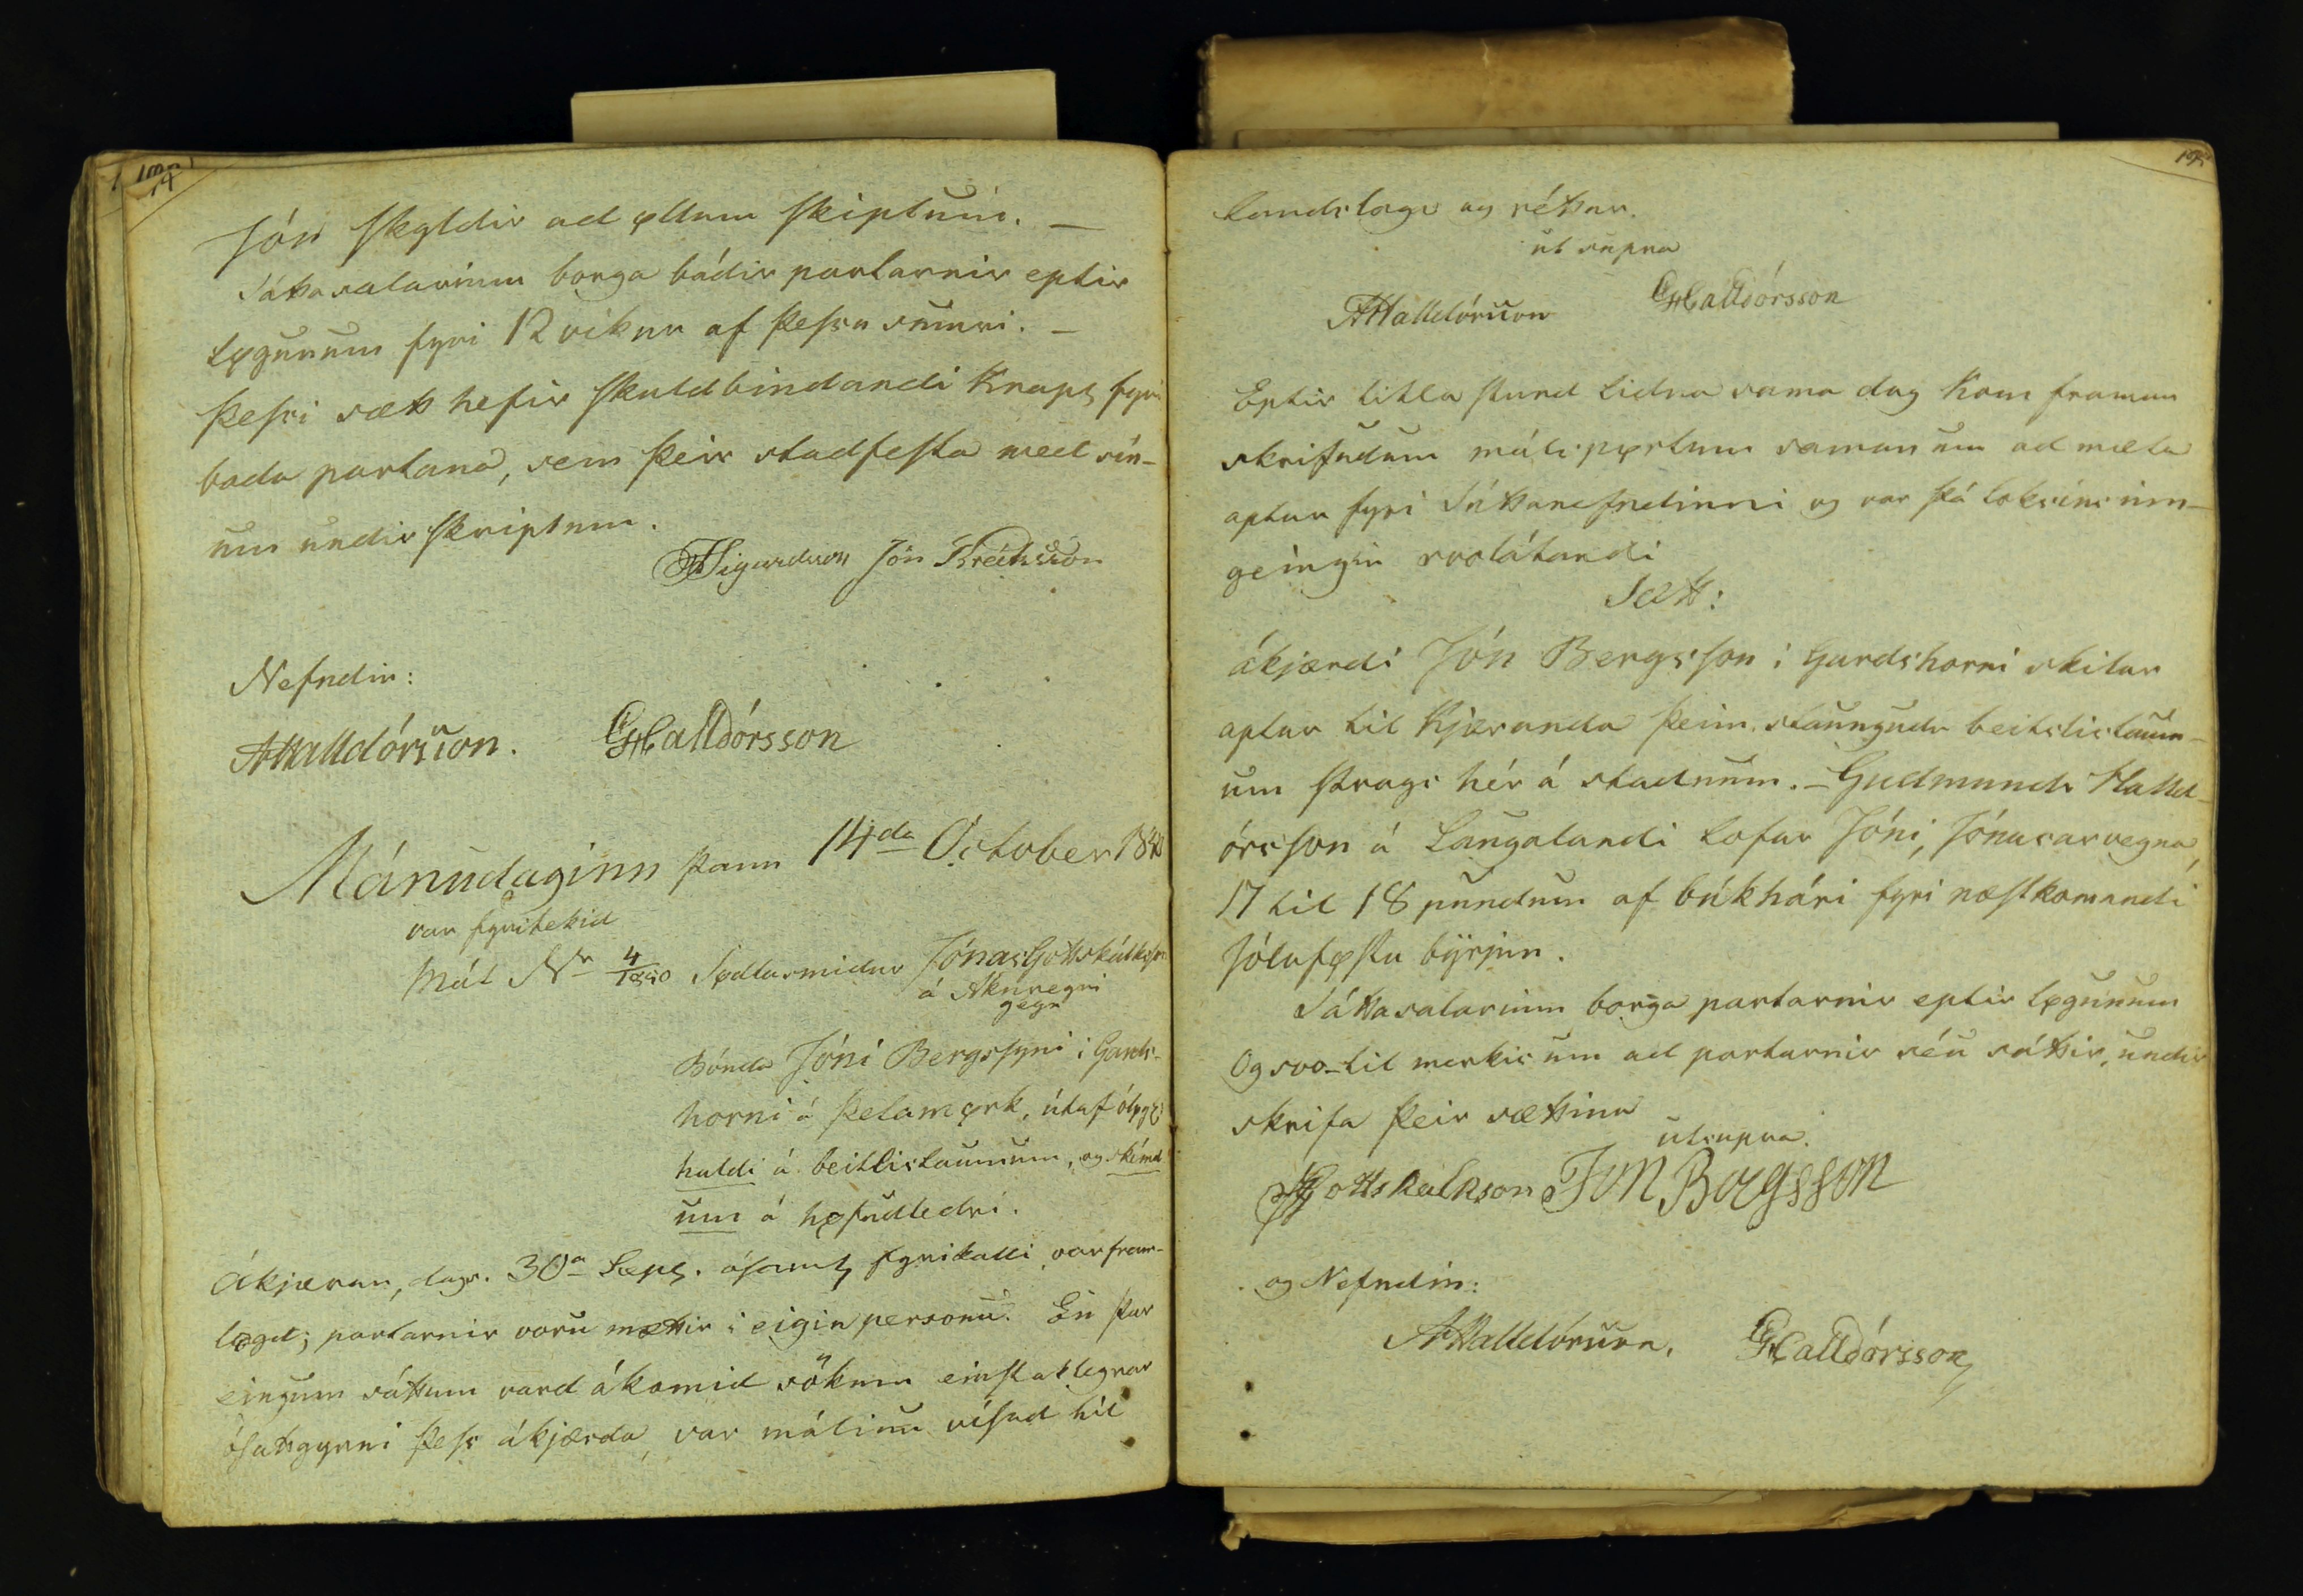 Jón skyldir ad øllum skiptum. —
Sáttasalarinn borga bádir partarnir eptir
løgunum fyri 12 vikur af þessu sumri. —
Þessi sætt hefir skuldbindandi krapt fyri
bada partana, sem þeir stadfesta med sín-
um undirskriptum.
Sigurdsson Jón Kredtsson
Nefndin:
AHalldórsson. GHalldórsson
Mánudaginn þann 14da October 1850
var fyritekid
Mál Nr 4/1850 Sødlasmidur Jónas Gottskálksson
á Akureyri
gegn
Bónda Jóni Bergssyni í Gards-
horni á Þelamørk, útaf óløgl
haldi á beitslistaunum, og skémd
um á høfudledri.
Ákjæran, dags. 30a Sept. ásamt fyrikalli var fram-
løgd; partarnir voru mættir í eigin personu. En þar
eingum sáttum vard ákomid sökum einstaklegrar
ósáttgyrni þess ákjærda, var málinu vísad til
landslaga og réttar.
ut supra
AHalldórsson GHalldórsson
Eptir litla stund lidna sama dag kom framan
skrifudum málspørtum saman um ad mæta
aptur fyri Sáttanefndinni og var þá loksins inn-
geingin svolátandi
Sætt:
ákjærdi Jón Bergsson í Gardshorni skilar
aptur til Kjæranda þeim staungudu beitslistaun-
um strags hér á stadnum. – Gudmundr Halld-
órsson á Laugalandi lofar Jóni, Jónasar vegna,
17 til 18 pundum af búkhári fyri næstkomandi
Jólaføstu byrjun.
Sáttasalarinn borga partarnir eptir løgunum
Og svo til merkis um ad partarnir séu sáttir, undir
skrifa þeir sættina
utsupra.
JGottskalkson Jon Bergsson
og Nefndin:
AHalldórsson. GHalldórsson